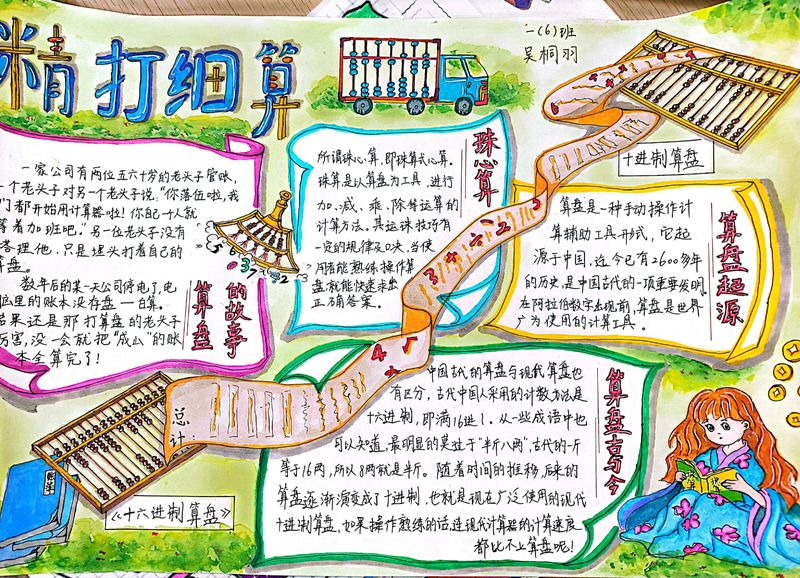 精打细算
一(6)班
吴桐羽
一家公司有两位五六十岁的老头子管账,
一个老头子对另一个老头说,"你落伍啦,我
们都开始用计算器啦!你自己一人就
等着加班吧."另一位老头子没有
答理他,只是埋头打着自己的
算盘。
数年后的某一天公司停电了,电
脑里的账本没存盘一旦算。
结果还是那打算盘的老头子
厉害,没一会就把"成山"的账
本全算完了!
算盘的故事
珠心算
所谓珠心算,即珠算式心算。
珠算是以算盘为工具,进行
加、减、乘、除等运算的
计算方法。其运珠技巧有
一定的规律及口诀,当使
用者能熟练操作算
盘就能快速求出
正确答案。
十进制算盘
算盘起源
算盘是一种手动操作计
算辅助工具形式,它起
源于中国,迄今已有2600多年
的历史,是中国古代的一项重要发明,
在阿拉伯数字出现前,算盘是世界
广为使用的计算工具。
算盘古与今
中国古代的算盘与现代算盘也
有区分,古代中国人采用的计数方法是
十六进制,即满16进1。从一些成语中也
可以知道,最明显的莫过于"半斤八两",古代的一斤
等于16两,所以8两就是半斤。随着时间的推移,后来的
算盘逐渐演变成了十进制,也就是现在广泛使用的现代
十进制算盘,如果操作熟练的话,连现代计算器的计算速度
都比不上算盘呢!
总计:
《十六进制算盘》